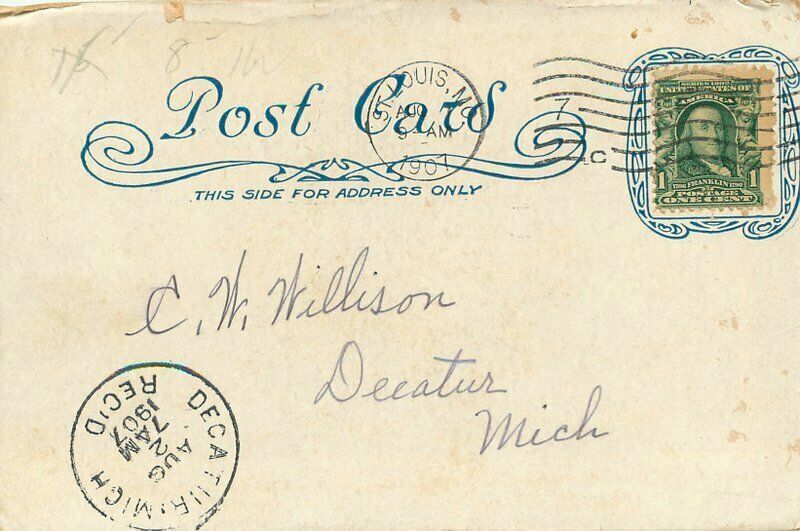 8 16
Post Card
THIS SIDE FOR ADDRESS ONLY
ST. LOUIS, MO.
AUG
9- AM
1907
7
C
SERIES 1902
UNITED STATES OF
AMERICA
1 1706 FRANKLIN 1790 1
POSTAGE
ONE CENT
C. W. Willison
Decatur
Mich
DECATUR, MICH
AUG
2
7AM
1907
REC'D